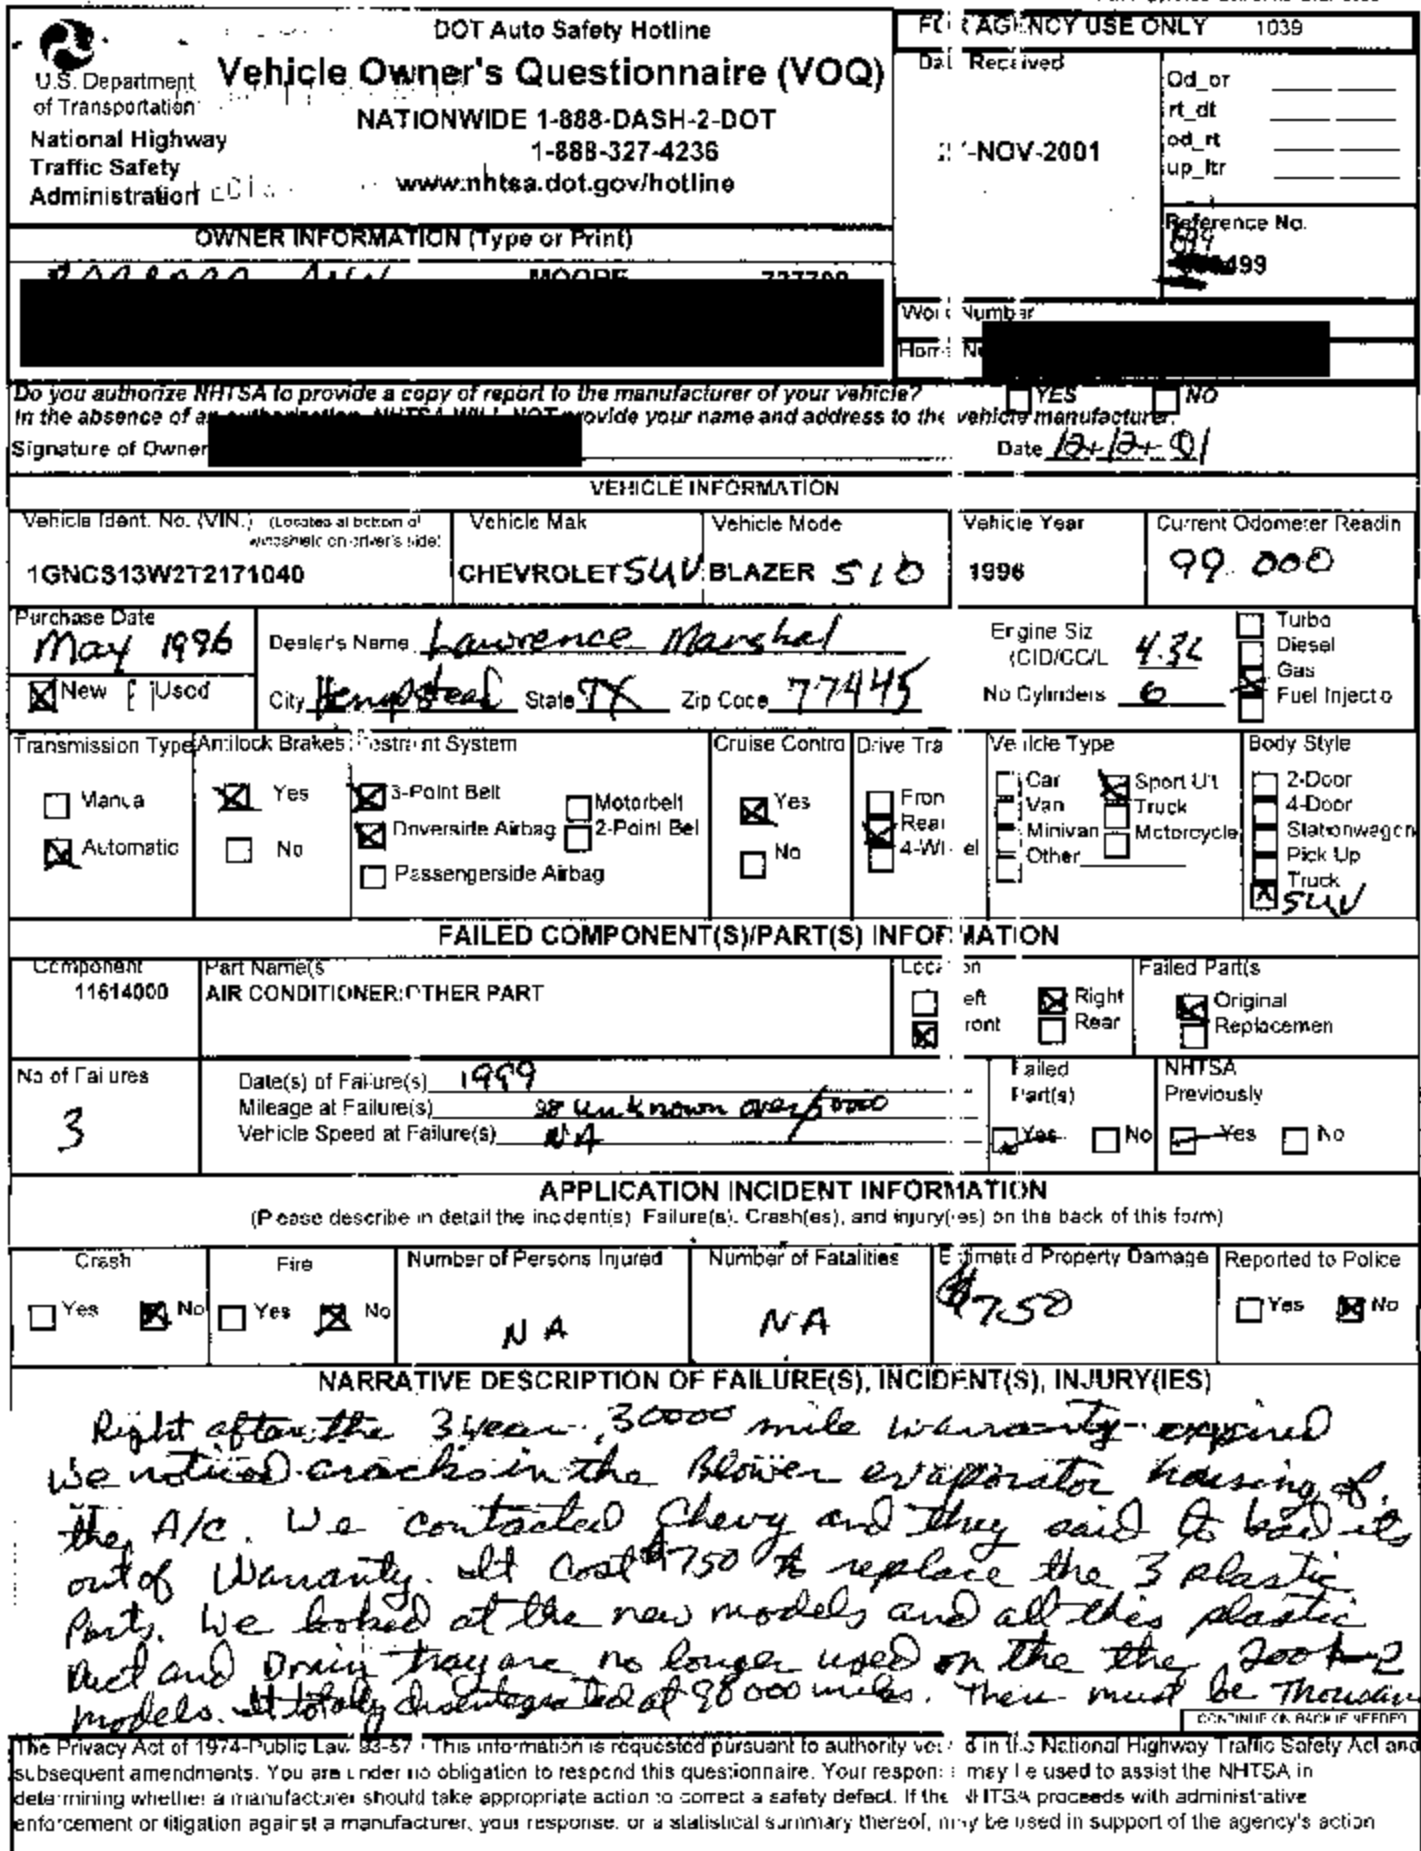 DOT Auto Safety Hotline
Vehicle Owner's Questionnaire (VOQ)
NATIONWIDE 1-888-DASH-2-DOT
1-888-327-4236
www.nhtsa.dot.gov/hotline
U.S. Department
of Transportation
National Highway
Traffic Safety
Administration
AGENCY USE ONLY 1039
Received
-NOV-2001
Od_or
rt_dt
od_rt
up_ltr
Reference No.
499
OWNER INFORMATION (Type or Print)
MOORE
Number
Do you authorize NHTSA to provide a copy of report to the manufacturer of your vehicle? YES NO
In the absence of provide your name and address to the vehicle manufacturer.
Signature of Owner Date 12-12-01
VEHICLE INFORMATION
Vehicle Ident. No. (VIN.) (Located at bottom of
windshield on driver's side)
1GNCS13W2T2171040
Vehicle Mak
CHEVROLET SUV
Vehicle Mode
BLAZER S10
Vehicle Year
1996
Current Odometer Readin
99.000
Purchase Date
May 1996
New Used
Dealer's Name Lawrence Marshal
City Hempstead State TX Zip Code 77445
Engine Siz
(CID/CC/L 4.3L
No Cylinders 6
Turbo
Diesel
Gas
Fuel Injectio
Transmission Type
Manua
Automatic
Antilock Brakes
Yes
No
System
3-Point Belt
Driverside Airbag
Passengerside Airbag
Motorbelt
2-Point Bel
Cruise Contro
Yes
No
Drive Tra
Fron
Rear
Vehicle Type
Car
Van
Minivan
Other
Sport Ut
Truck
Motorcycle
Body Style
2-Door
4-Door
Stationwagon
Pick Up
Truck
SUV
FAILED COMPONENT(S)/PART(S) INFORMATION
Component
11614000
Part Name(s
AIR CONDITIONER:OTHER PART
Right
Rear
Failed Part(s
Original
Replacemen
No of Failures
3
Date(s) of Failure(s) 1999
Mileage at Failure(s) 98 unknown over
Vehicle Speed at Failure(s) NA
Failed
Part(s)
Yes No
NHTSA
Previously
Yes No
APPLICATION INCIDENT INFORMATION
(Please describe in detail the incident(s) Failure(s), Crash(es), and injury(ies) on the back of this form)
Crash
Yes No
Fire
Yes No
Number of Persons Injured
NA
Number of Fatalities
NA
Estimated Property Damage
$750
Reported to Police
Yes No
NARRATIVE DESCRIPTION OF FAILURE(S), INCIDENT(S), INJURY(IES)
Right after the 3 year, 30000 mile warranty expired
we noticed cracks in the Blower evaporator housing of
the A/C. We contacted Chevy and they said to bad its
out of Warranty. It cost $750 to replace the 3 plastic
Parts. We looked at the new models and all this plastic
Duct and Drain tray are no longer used on the the
models. It totaly disentegrated at 98000 miles. Their must be Thousan
CONTINUE ON BACK IF NEEDED
The Privacy Act of 1974-Public Law This information is requested pursuant to authority in the National Highway Traffic Safety Act and
subsequent amendments. You are under no obligation to respond this questionnaire. Your may be used to assist the NHTSA in
determining whether a manufacturer should take appropriate action to correct a safety defect. If the NHTSA proceeds with administrative
enforcement or litigation against a manufacturer, your response, or a statistical summary thereof, may be used in support of the agency's action